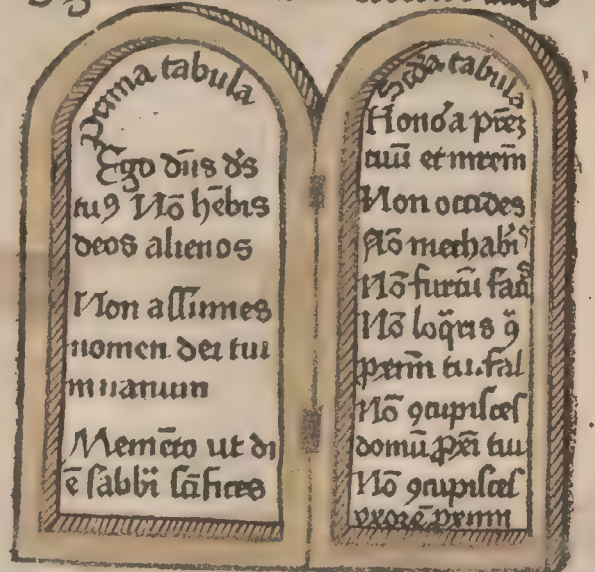 Prima tabula
Ego dn̄s d's
tuꝰ Nō hēbis
deos alienos
Non aſſumes
nomen dei tui
in uanum
Memēto ut di
ē ſabbi ſcīfices
Scd̄a tabula
Honoꝛa pr̄eꝫ
tuū et mr̄em
Non occides
Nō mechabis
Nō furtū faci
Nō loq̄ris ꝯ
tuū fal
Nō ꝯcupiſceſ
domū ꝓxi tui
Nō ꝯcupiſceſ
vxoꝛē pximi